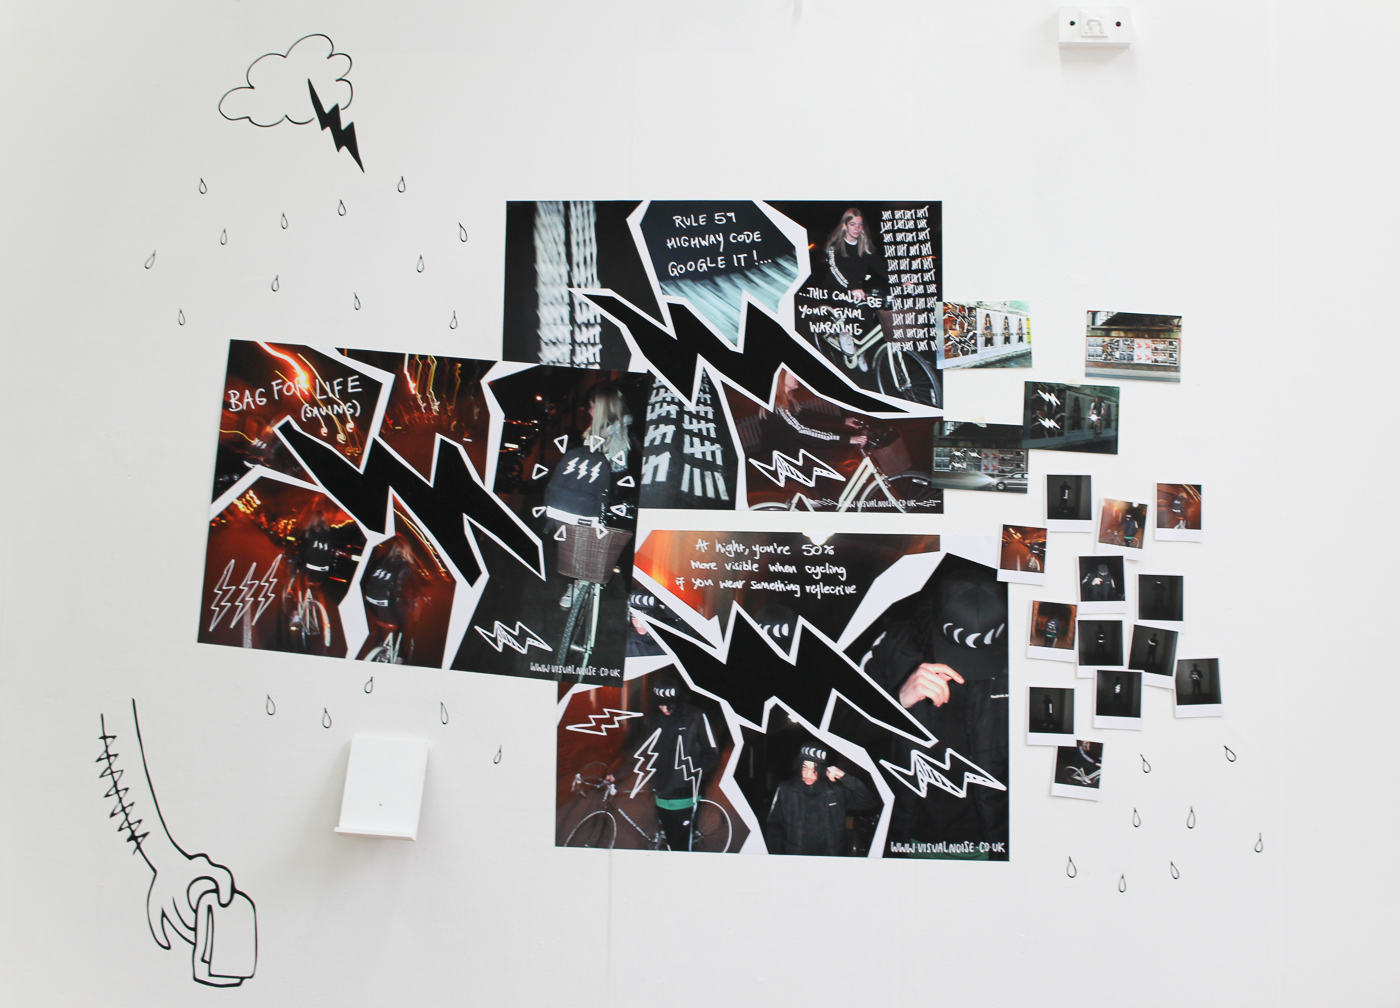 RULE 59
HIGHWAY CODE
GOOGLE IT !...
...THIS COULD BE
YOUR FINAL
WARNING
WWW.VISUALNOISE.CO.UK
BAG FOR LIFE
(SAVING)
WWW.VISUALNOISE.CO.UK
At night, you're 50%
more visible when cycling
if you wear something reflective
WWW.VISUALNOISE.CO.UK